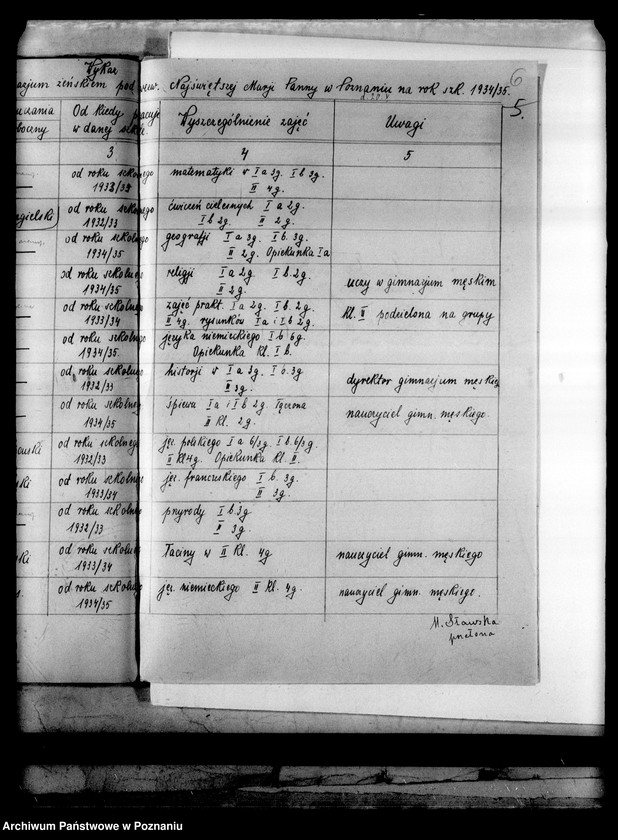 Wykaz
6
żeńskiem pod wezw. Najświętszej Marji Panny w Poznaniu na rok szk. 1934/35.
5.
Od kiedy pracuje
w danej szkole
Wyszczególnienie zajęć
Uwagi
3 4 5
od roku szkolnego matematyki w I a 3g. I b 3g.
1933/34 II 4g.
od roku szkolnego ćwiczeń cielesnych I a 2g.
1932/33 I b 2g. II 2g.
od roku szkolnego geografji I a 3g. I b. 3g.
1934/35 II 2g. Opiekunka I a
od roku szkolnego religji I a 2g I b. 2g. uczy w gimnazjum męskim
1934/35 II 2g.
od roku szkolnego zajęć prakt. I a 2g. I b. 2g. kl. II podzielona na grupy
1933/34 II 4g. rysunków I a i I b 2g.
od roku szkolnego języka niemieckiego I b 6g.
1934/35. Opiekunka kl. I b.
od roku szkolnego historji w I a 3g. I b. 3g. dyrektor gimnazjum męskiego
1932/33 II 3g.
od roku szkolnego śpiewu I a i I b 2g. łączona nauczyciel gimn. męskiego.
1934/35 II kl. 2g.
od roku szkolnego jęz. polskiego I a 6/3g. I b. 6/3g.
1932/33 II kl 4g. Opiekunka kl. II.
od roku szkolnego jęz. francuskiego I b. 3g.
1933/34 II 3g.
od roku szkolnego przyrody I b. 3g
1932/33 II 3g.
od roku szkolnego łaciny w II kl. 4g nauczyciel gimn. męskiego
1933/34
od roku szkolnego jęz. niemieckiego II kl. 4g. nauczyciel gimn. męskiego.
1934/35
M. Sławska
przełożona
Archiwum Państwowe w Poznaniu